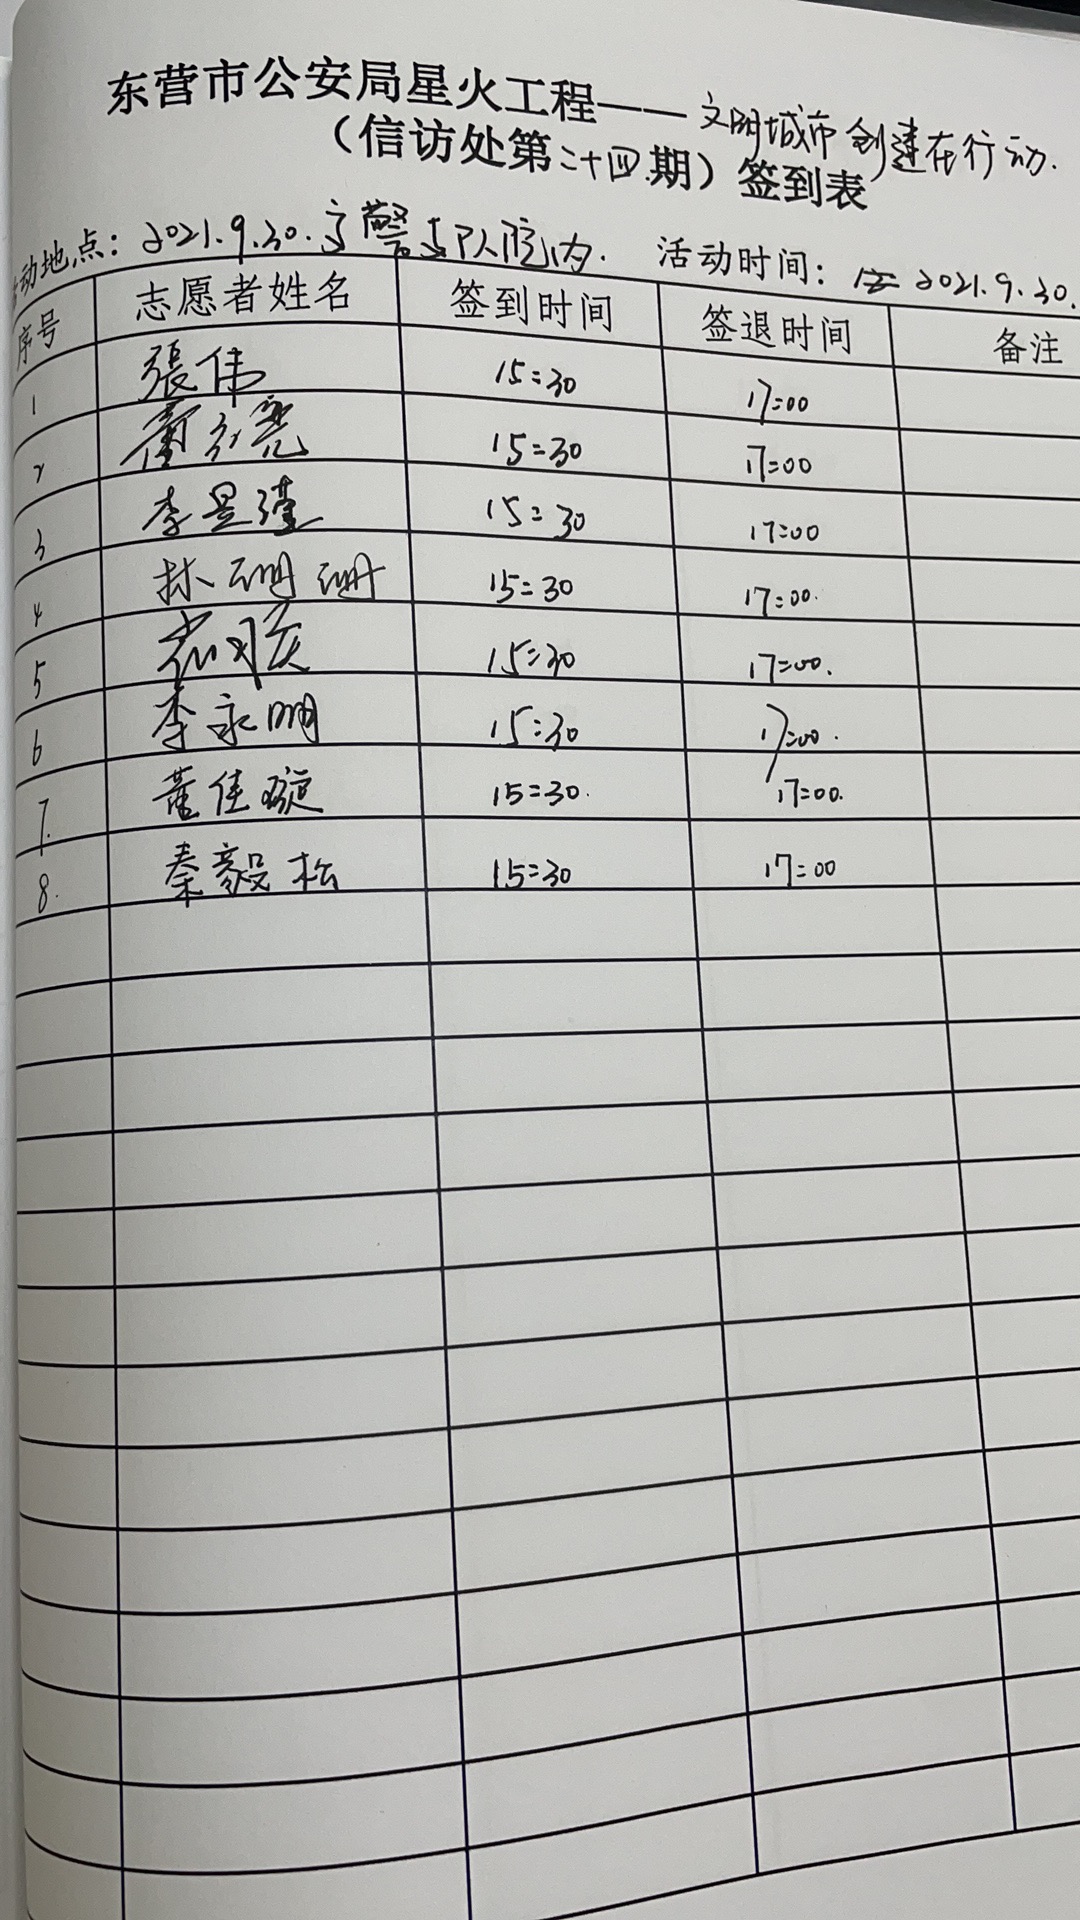 东营市公安局星火工程——文明城市创建在行动.
（信访处第二十四期）签到表
动地点：2021.9.30.交警支队院内. 活动时间：2021.9.30.
序号 志愿者姓名 签到时间 签退时间 备注
1 張伟 15:30 17:00
2 15:30 17:00
3 李昱瑾 15:30 17:00
4 林珊珊 15:30 17:00.
5 15:30 17:00.
6 李永明 15:30 17:00.
7. 董佳璇 15:30. 17:00.
8. 秦毅松 15:30 17:00